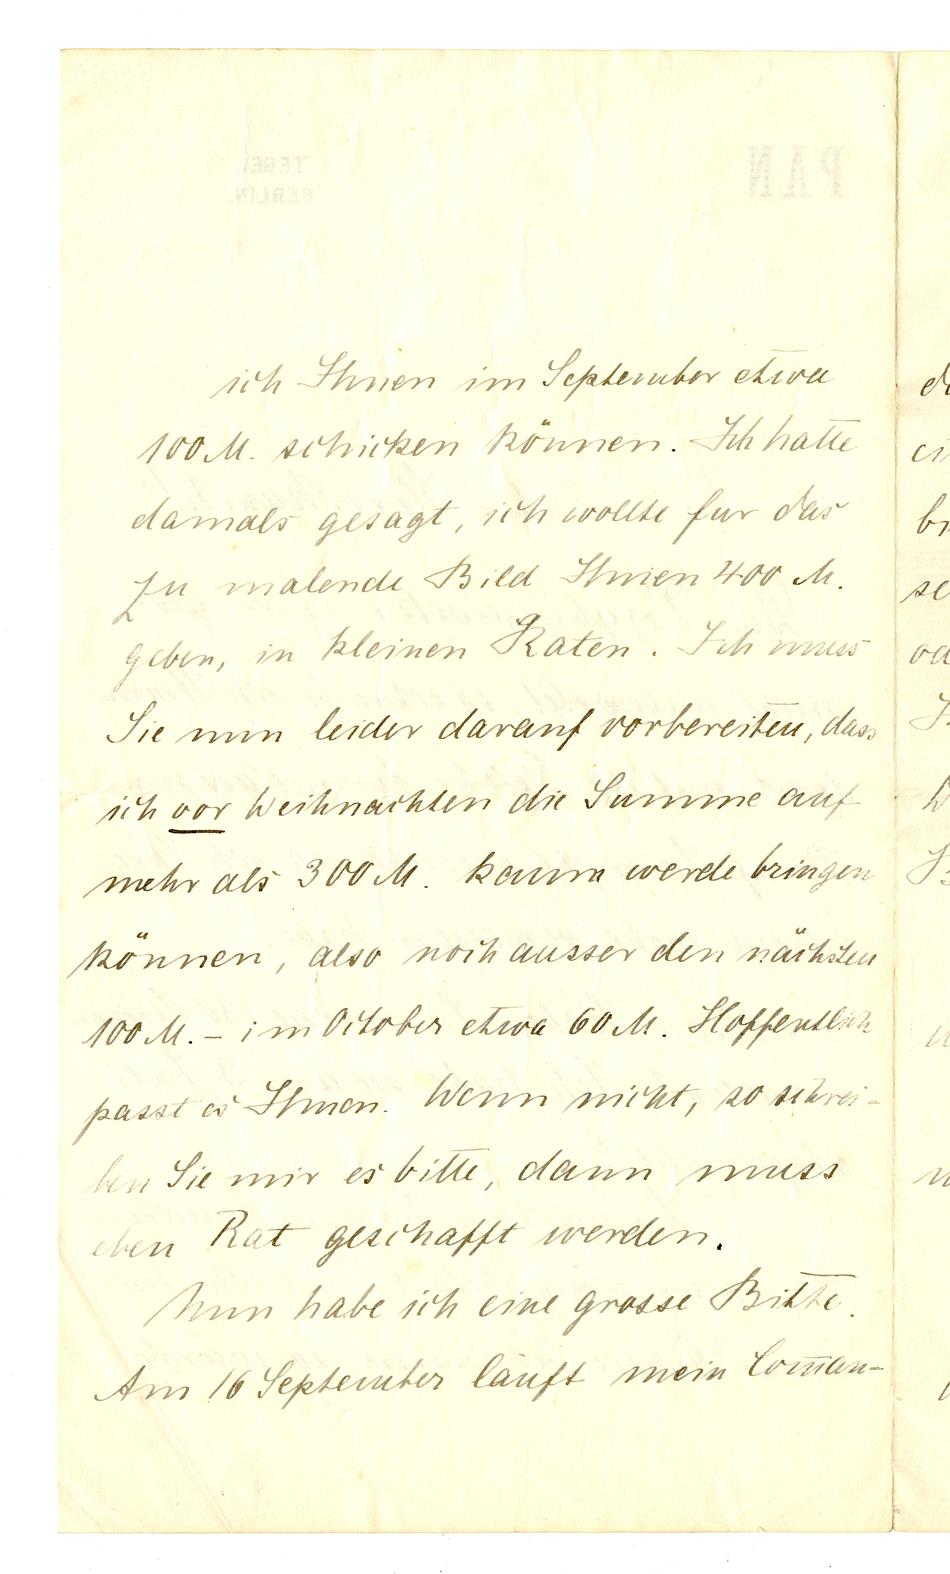 PAN
TEGEL
BERLIN.
ich Ihnen im September etwa
100 M. schicken können. Ich hatte
damals gesagt, ich wollte fur das
zu malende Bild Ihnen 400 M.
geben, in kleinen Raten. Ich muss
Sie nun leider darauf vorbereiten, dass
ich vor Weihnachten die Summe auf
mehr als 300 M. kaum werde bringen
können, also noch ausser den nächsten
100 M. – im October etwa 60 M. Hoffentlich
passt es Ihnen. Wenn nicht, so schrei-
ben Sie mir es bitte, dann muss
eben Rat geschafft werden.
Nun habe ich eine grosse Bitte.
Am 16 September läuft mein Com̄an-